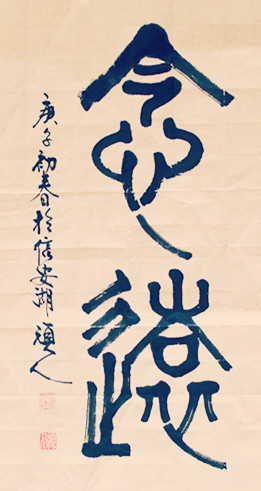 念遠
庚子初春於信安湖 頑人